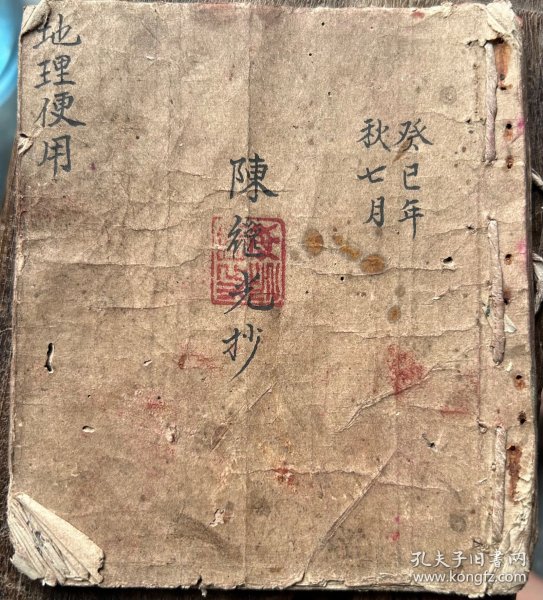 癸巳年
秋七月
陳繼光抄
地理便用
孔夫子旧书网
www.kongfz.com